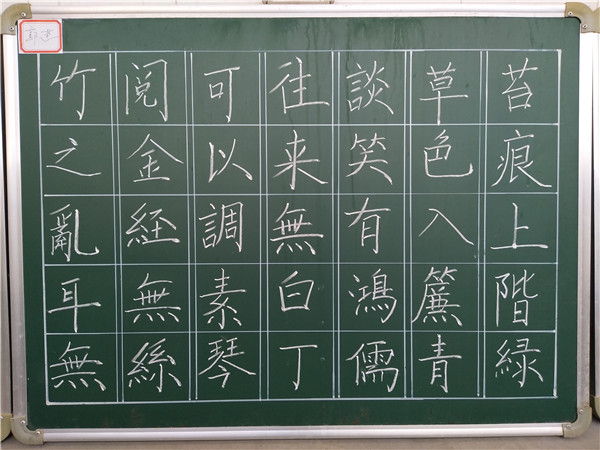 苔痕上階緑
草色入簾青
談笑有鴻儒
往来無白丁
可以調素琴
閲金経無絲
竹之亂耳無